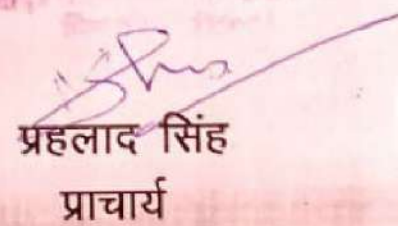 प्रहलाद सिंह
प्राचार्य